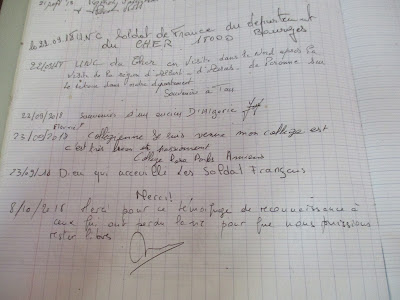 le 22.09.18 UNC Soldat de France du département
du CHER 18000 Bourges
22/09/2018 UNC du Cher en visite dans le Nord après la
visite de la région d'Albert - d'Arras - de Peronne sur
la Somme dans notre département
Souvenir à Tous
22/09/2018 Souvenir d'un ancien
23/09/2018 Collégienne Je suis venue mon collège est
c'est très bien
Collège Rosa Parks Amiens
23/09/18 Dieu qui accueille les Soldat Français
Merci!
8/10/2018 Merci pour ce témoignage de reconnaissance à
ceux qui ont perdu la vie pour que nous puissions
rester libres